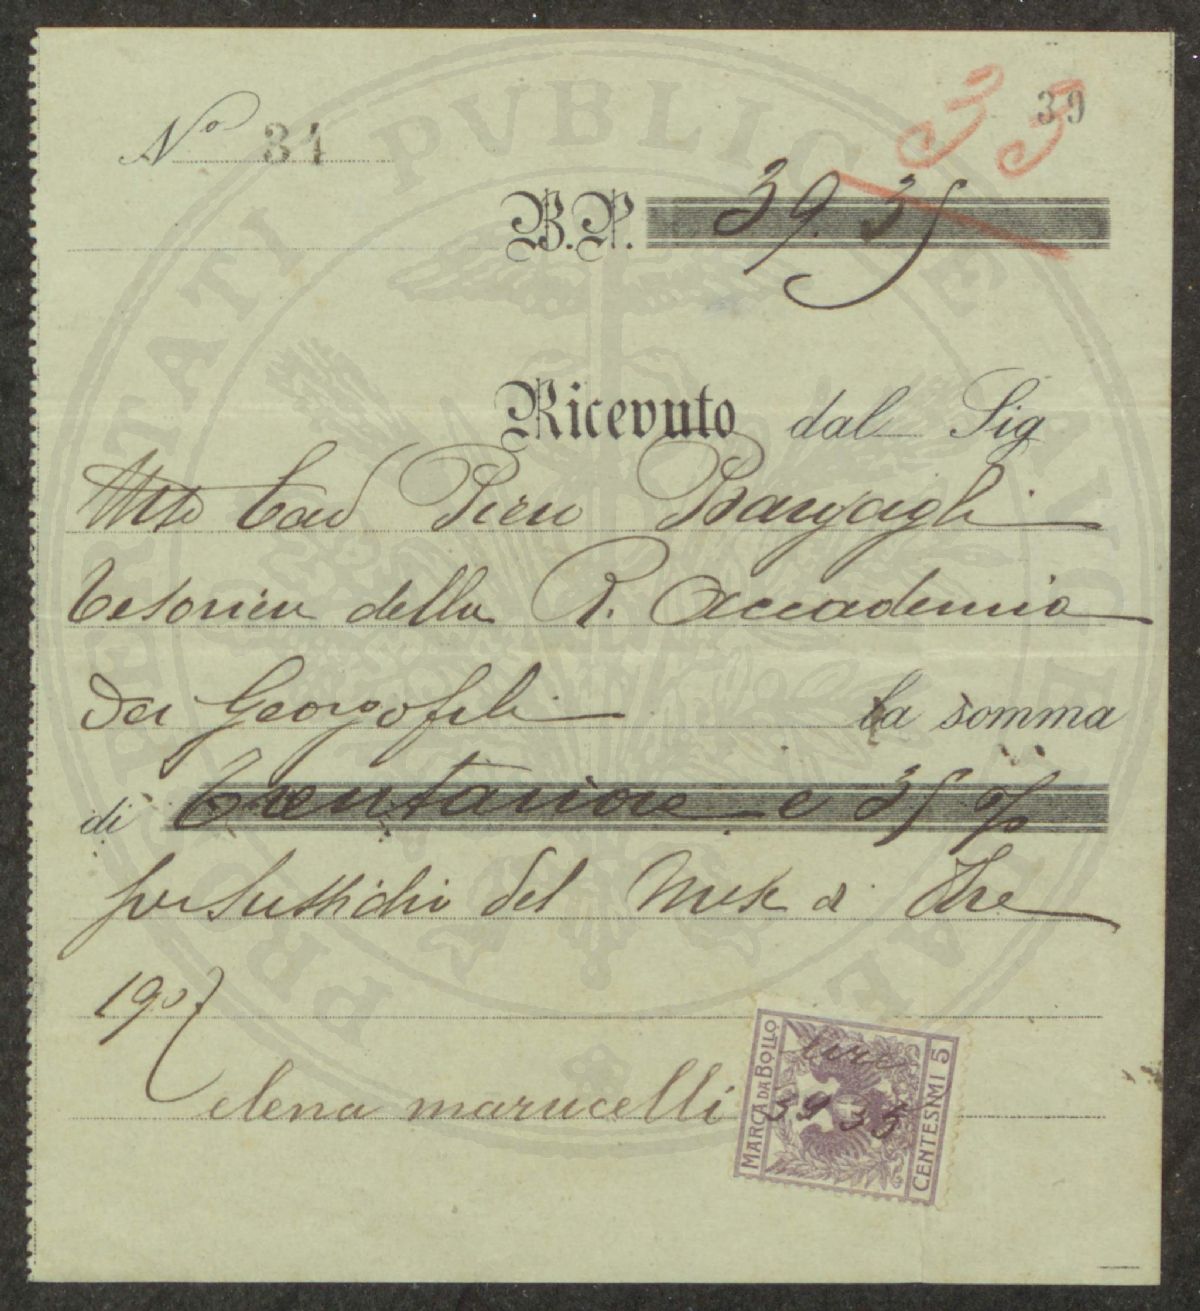 39
33
Nº 34
B.P. 39.35
Ricevuto dal Sig
Piero Bargagli
tesoriere della R. Accademia
dei Georgofili la somma
di trentanove e 35 %
per sussidio del mese di
1907
elena marucelli
MARCA DA BOLLO
lire
39 35
CENTESIMI 5
PROSPERITATI PVBLICAE AVGENDAE